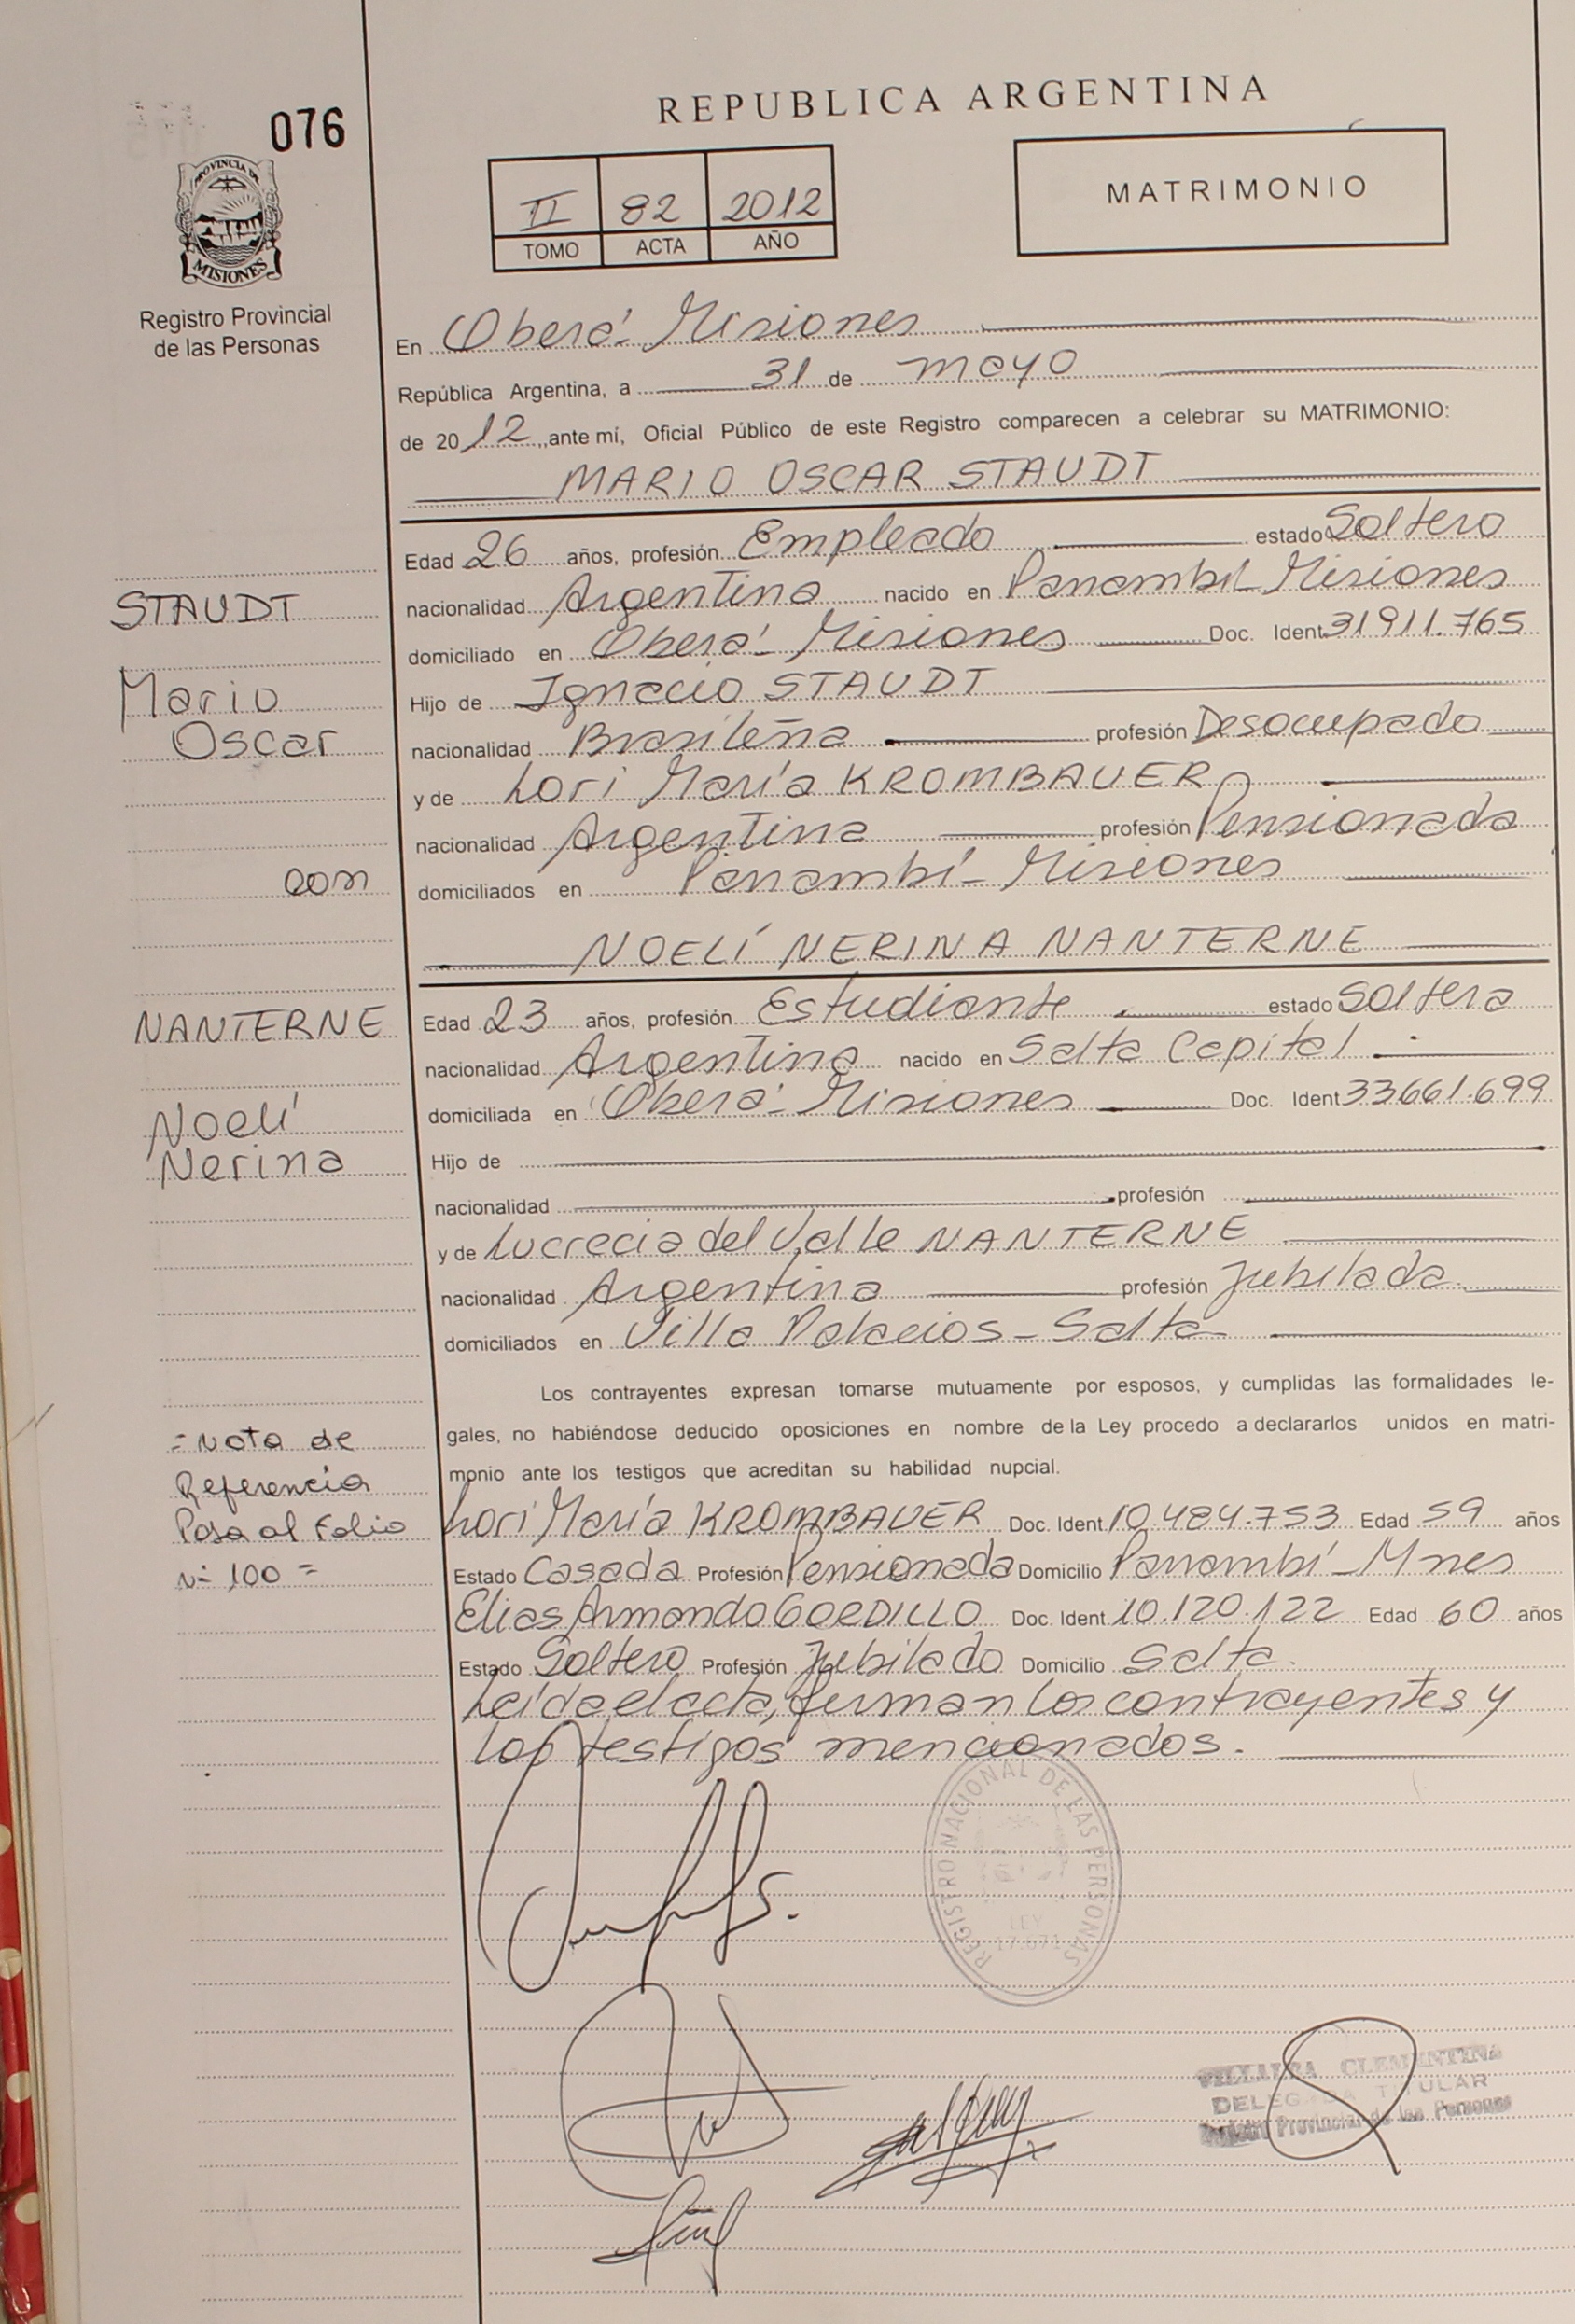 REPUBLICA ARGENTINA
076
PROVINCIA DE
MISIONES
Registro Provincial
de las Personas
II 82 2012
TOMO ACTA AÑO
MATRIMONIO
En Oberá - Misiones
República Argentina, a 31 de mayo
de 2012, ante mí, Oficial Público de este Registro comparecen a celebrar su MATRIMONIO:
MARIO OSCAR STAUDT
Edad 26 años, profesión Empleado estado Soltero
nacionalidad Argentina nacido en Panambí - Misiones
domiciliado en Oberá - Misiones Doc. Ident. 31911.765
Hijo de Ignacio STAUDT
nacionalidad Brasileña profesión Desocupado
y de Lori María KROMBAUER
nacionalidad Argentina profesión Pensionada
domiciliados en Panambí - Misiones
NOELÍ NERINA NANTERNE
Edad 23 años, profesión Estudiante estado Soltera
nacionalidad Argentina nacido en Salta Capital
domiciliada en Oberá - Misiones Doc. Ident 33661.699
Hijo de
nacionalidad profesión
y de Lucrecia del Valle NANTERNE
nacionalidad Argentina profesión Jubilada
domiciliados en Villa Palacios - Salta
Los contrayentes expresan tomarse mutuamente por esposos, y cumplidas las formalidades le-
gales, no habiéndose deducido oposiciones en nombre de la Ley procedo a declararlos unidos en matri-
monio ante los testigos que acreditan su habilidad nupcial.
Lori María KROMBAUER Doc. Ident. 10.484.753 Edad 59 años
Estado Casada Profesión Pensionada Domicilio Panambí - Mnes
Elias Armando GORDILLO Doc. Ident 10.120.122 Edad 60 años
Estado Soltero Profesión Jubilado Domicilio Salta.
Leída el acta, firman los contrayentes y
los testigos mencionados.
STAUDT
Mario
Oscar
con
NANTERNE
Noelí
Nerina
= Nota de
Referencia
Pasa al Folio
Nº 100 =
REGISTRO NACIONAL DE LAS PERSONAS
LEY
17.671
VILLALBA CLEMENTINA
DELEGADA TITULAR
Registro Provincial de las Personas